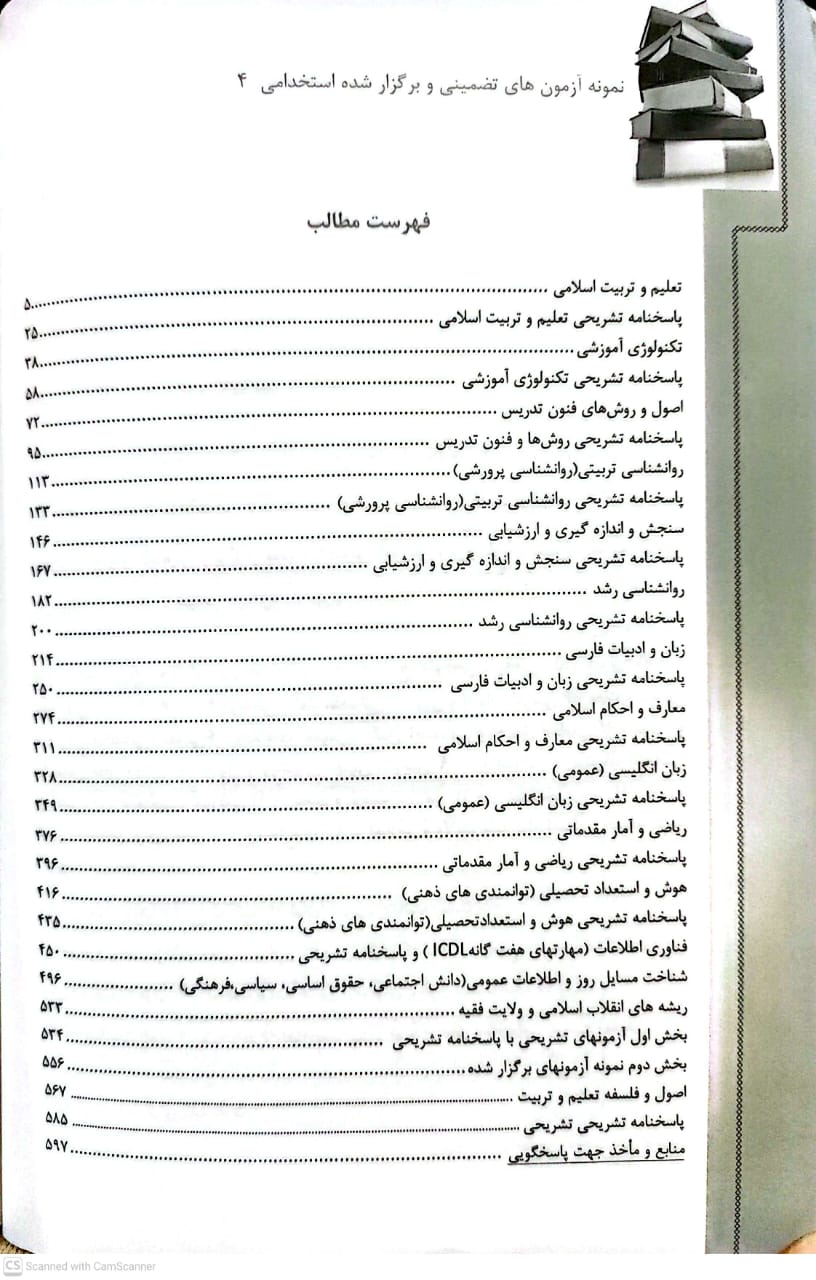 نمونه آزمون های تضمینی و برگزار شده استخدامی ۴
فهرست مطالب
تعلیم و تربیت اسلامی ................ ۵
پاسخنامه تشریحی تعلیم و تربیت اسلامی ................ ۲۵
تکنولوژی آموزشی ................ ۳۸
پاسخنامه تشریحی تکنولوژی آموزشی ................ ۵۸
اصول و روش‌های فنون تدریس ................ ۷۲
پاسخنامه تشریحی روش‌ها و فنون تدریس ................ ۹۵
روانشناسی تربیتی(روانشناسی پرورشی) ................ ۱۱۳
پاسخنامه تشریحی روانشناسی تربیتی(روانشناسی پرورشی) ................ ۱۳۳
سنجش و اندازه گیری و ارزشیابی ................ ۱۴۶
پاسخنامه تشریحی سنجش و اندازه گیری و ارزشیابی ................ ۱۶۷
روانشناسی رشد ................ ۱۸۲
پاسخنامه تشریحی روانشناسی رشد ................ ۲۰۰
زبان و ادبیات فارسی ................ ۲۱۴
پاسخنامه تشریحی زبان و ادبیات فارسی ................ ۲۵۰
معارف و احکام اسلامی ................ ۲۷۴
پاسخنامه تشریحی معارف و احکام اسلامی ................ ۳۱۱
زبان انگلیسی (عمومی) ................ ۳۲۸
پاسخنامه تشریحی زبان انگلیسی (عمومی) ................ ۳۴۹
ریاضی و آمار مقدماتی ................ ۳۷۶
پاسخنامه تشریحی ریاضی و آمار مقدماتی ................ ۳۹۶
هوش و استعداد تحصیلی (توانمندی های ذهنی) ................ ۴۱۶
پاسخنامه تشریحی هوش و استعدادتحصیلی(توانمندی های ذهنی) ................ ۴۳۵
فناوری اطلاعات (مهارتهای هفت گانهICDL ) و پاسخنامه تشریحی ................ ۴۵۰
شناخت مسایل روز و اطلاعات عمومی(دانش اجتماعی، حقوق اساسی، سیاسی،فرهنگی) ................ ۴۹۶
ریشه های انقلاب اسلامی و ولایت فقیه ................ ۵۳۳
بخش اول آزمونهای تشریحی با پاسخنامه تشریحی ................ ۵۳۴
بخش دوم نمونه آزمونهای برگزار شده ................ ۵۵۶
اصول و فلسفه تعلیم و تربیت ................ ۵۶۷
پاسخنامه تشریحی تشریحی ................ ۵۸۵
منابع و مأخذ جهت پاسخگویی ................ ۵۹۷
CS Scanned with CamScanner